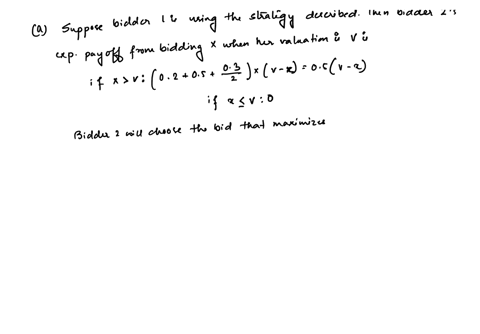 (a) Suppose bidder 1 is using the strategy described. Then bidder 2's
exp. payoff from bidding x when her valuation is v is
if x > v : (0.2 + 0.5 + 0.3/2) × (v - x) = 0.5 (v - x)
if x ≤ v : 0
Bidder 2 will choose the bid that maximizes